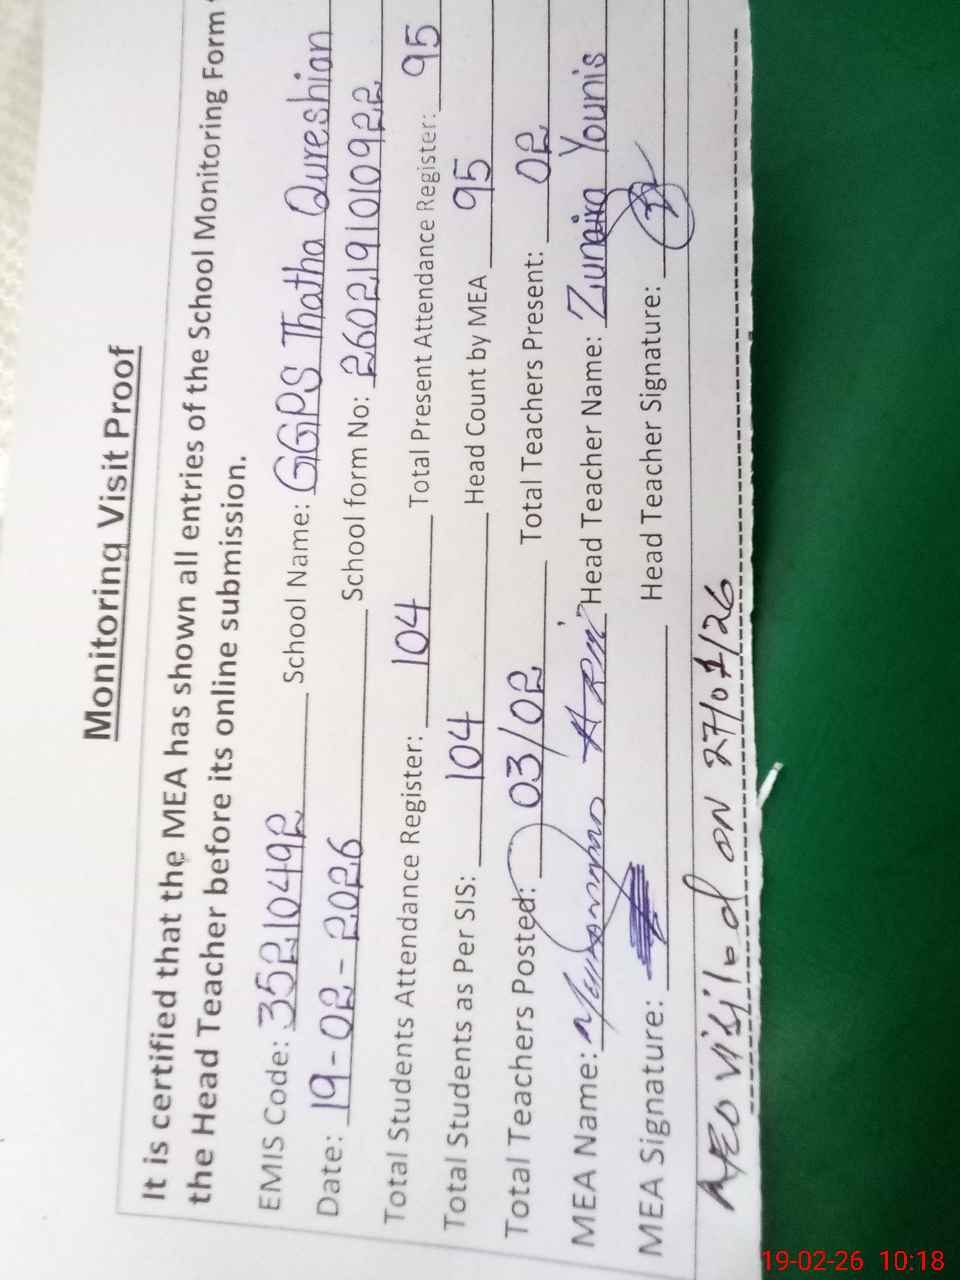 Monitoring Visit Proof
It is certified that the MEA has shown all entries of the School Monitoring Form
the Head Teacher before its online submission.
EMIS Code: 35210492 School Name: GGPS Thatha Qureshian
Date: 19-02-2026 School form No: 2602191010922
Total Students Attendance Register: 104 Total Present Attendance Register: 95
Total Students as Per SIS: 104 Head Count by MEA 95
Total Teachers Posted: 03/02 Total Teachers Present: 02
MEA Name: Head Teacher Name: Zunaira Younis
MEA Signature: Head Teacher Signature:
AEO visited on 27/01/26
19-02-26 10:18